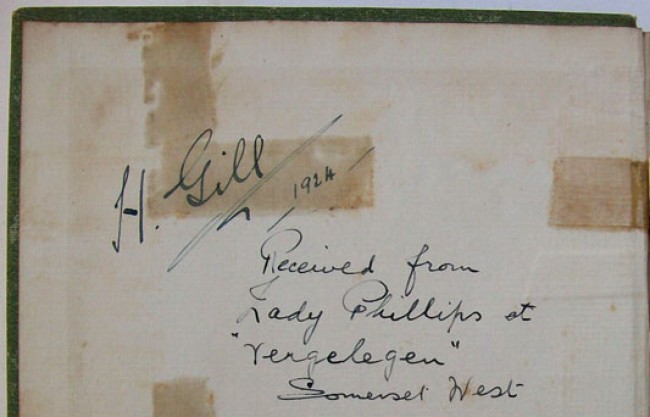 H. Gill
1924
Received from
Lady Phillips at
"Vergelegen"
Somerset West